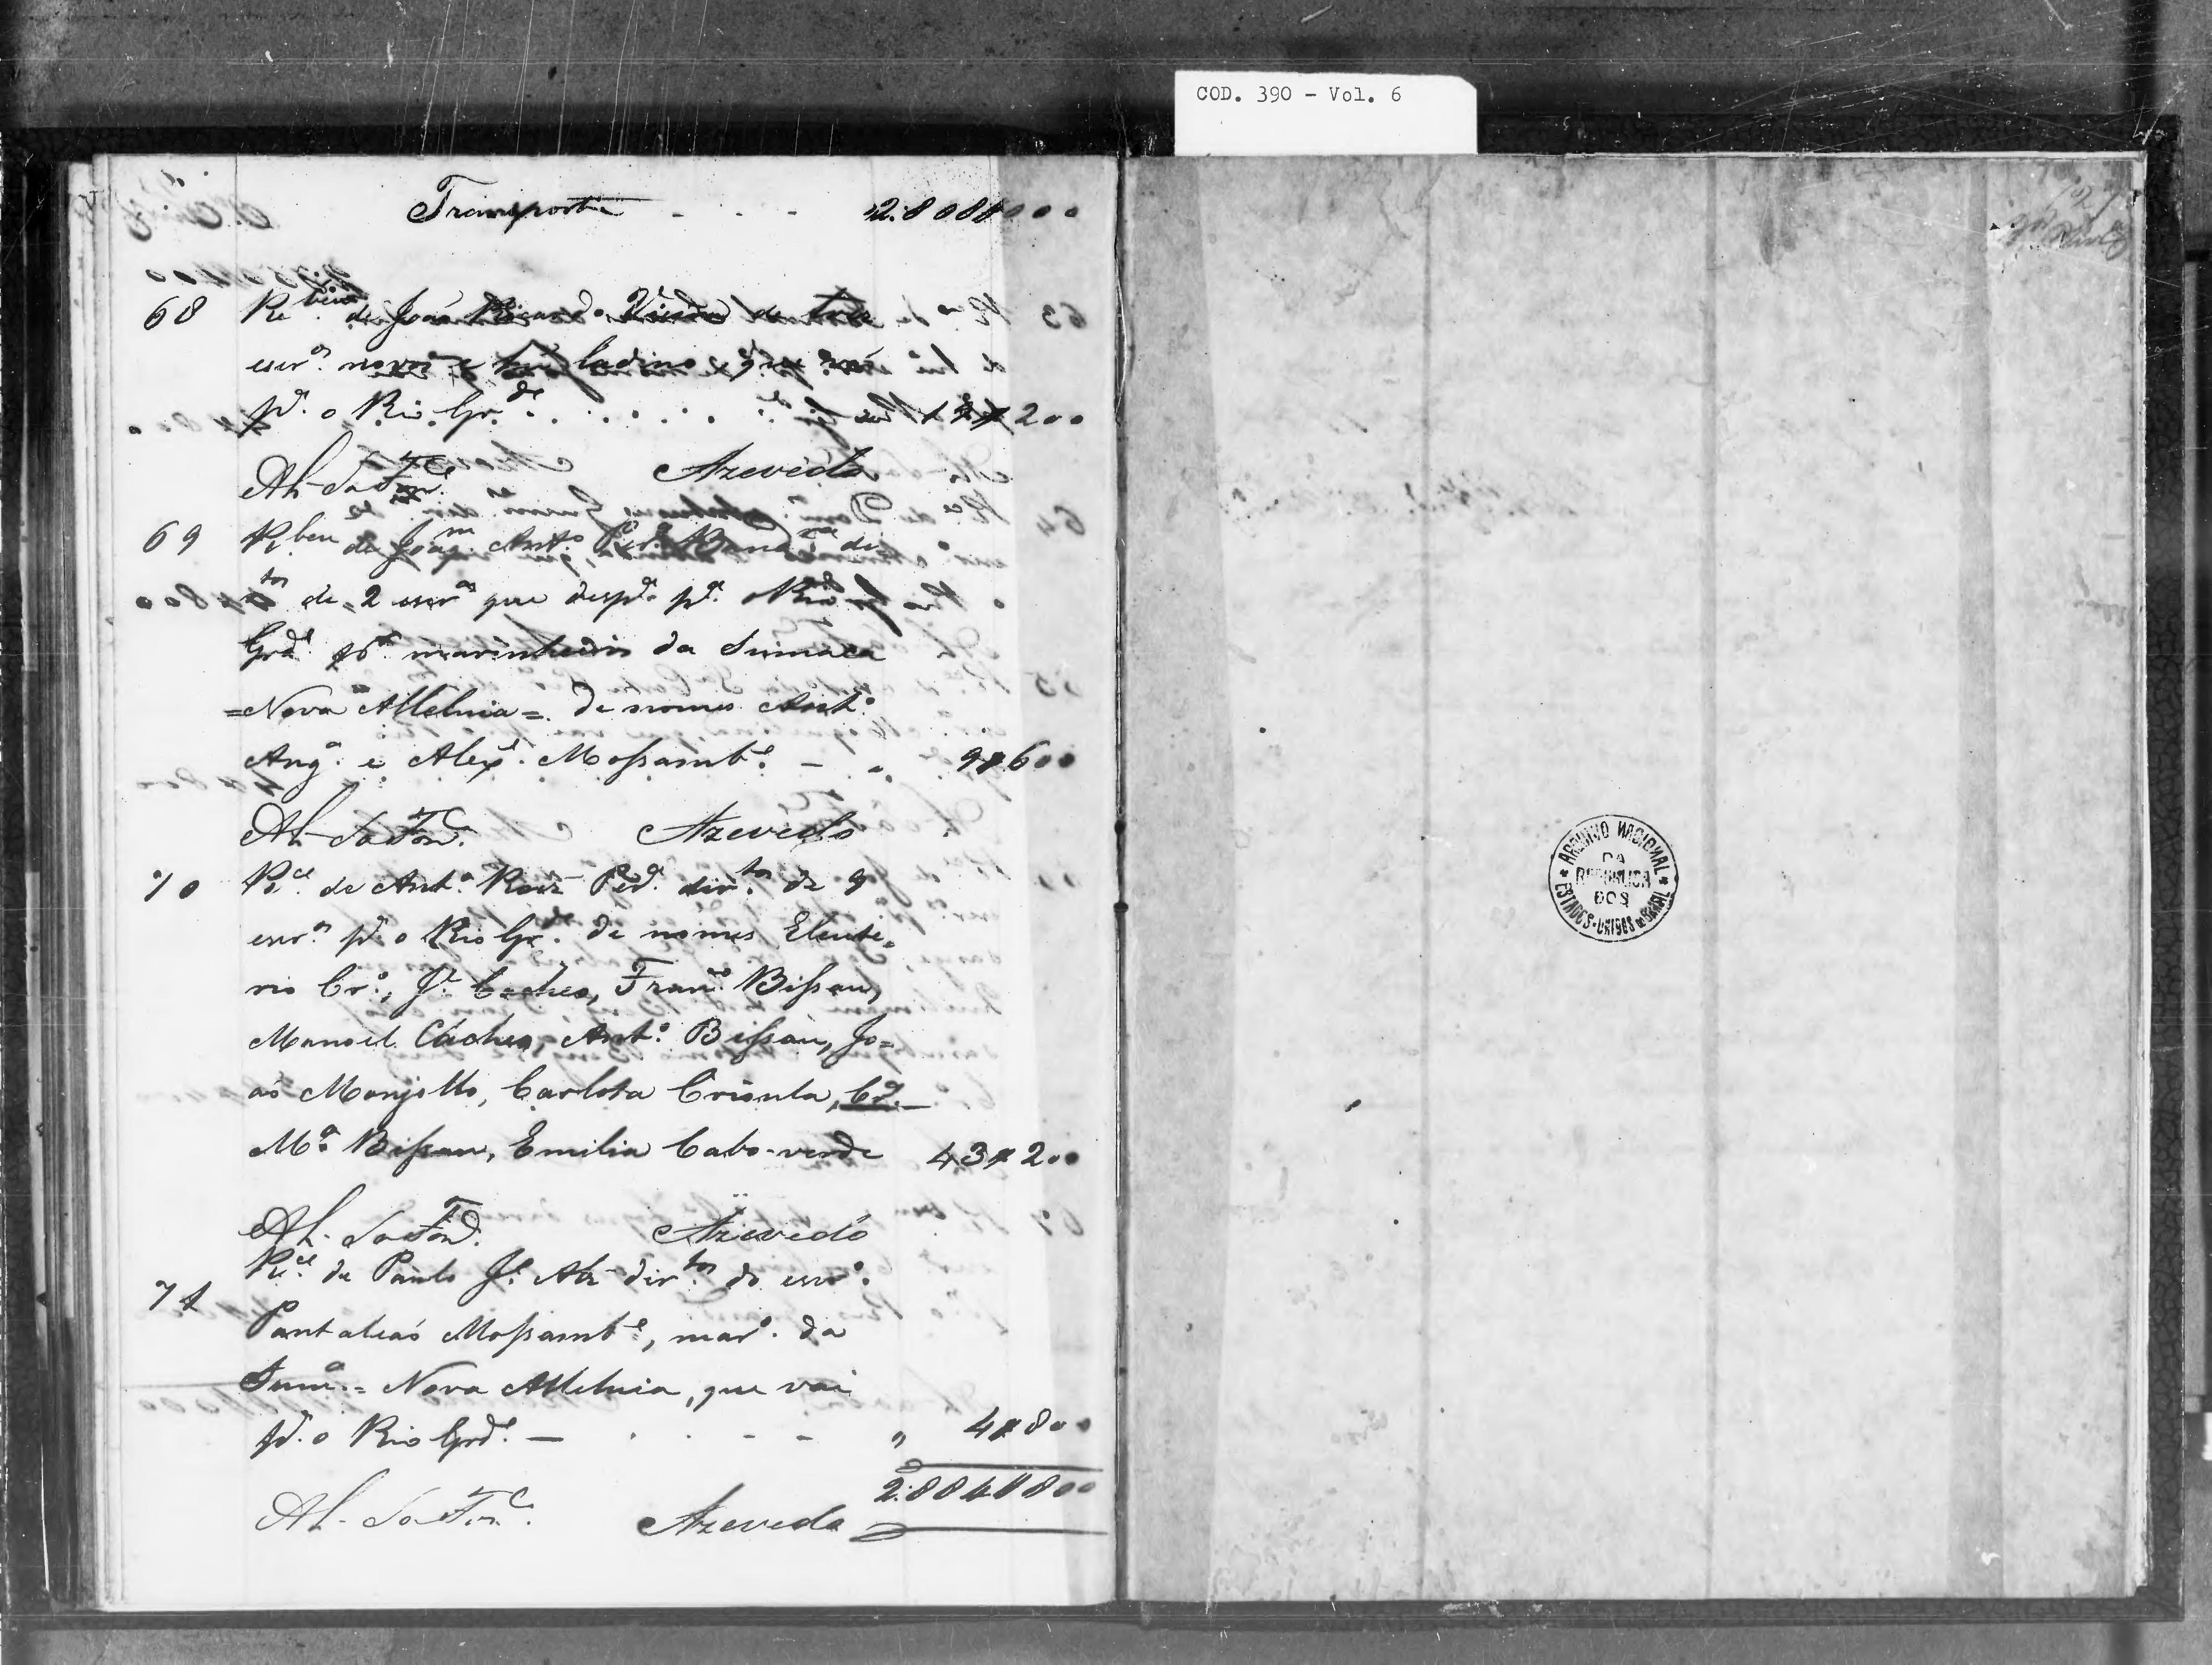 COD. 390 - Vol. 6
Transporte - - - 2:808$000
68 Rbeu de João Ricardo de
escros novos e hũ ladino que
pa o Rio Grde 200
Al. da Fonca Azevedo
69 Rbeu de Joaqm Anto Perª di-
tos de 2 escros que despa pa o Rio
Grde pr marinheiros da Sumaca
= Nova Alleluia = de nomes Anto
Anga e Alexe Mossambe - " 9$600
Al. da Fonca Azevedo
70 Rce de Anto Roiz Perª dirtos de 9
escros pa o Rio Grde de nomes Eleute=
rio Cro, Je Cacheo, Franco Bissau,
Manoel Cacheo, Anto Bissau, Jo=
ão Monjollo, Carlota Crioula,
Ma Bissau, Emilia Cabo-verde 43$200
Al. da Fonca Azevedo
71 Rce de Paulo Je dirtos do escro
Pantaleaó Mossambe, maro da
Suma = Nova Alleluia, que vai
pa o Rio Grde - - - " 4$800
2:884$800
Al. da Fonca Azevedo
ARQUIVO NACIONAL
DA
REPUBLICA
DOS
ESTADOS-UNIDOS DO BRAZIL